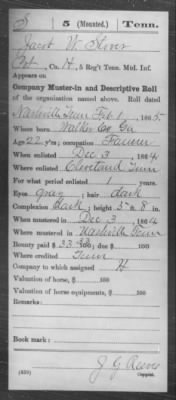 S 5 (Mounted.) Tenn.
Jacob W. Stover
Pvt, Co. H, 5 Reg't Tenn. Mtd. Inf.
Appears on
Company Muster-in and Descriptive Roll
of the organization named above. Roll dated
Nashville Tenn Feb 1, 1865.
Where born Walker Co. Ga
Age 22 y'rs; occupation Farmer
When enlisted Dec 3, 1864
Where enlisted Cleveland Tenn
For what period enlisted 1 years.
Eyes gray; hair dark
Complexion dark; height 5 ft. 8 in.
When mustered in Dec 3, 1864
Where mustered in Nashville Tenn
Bounty paid $ 33 33/100; due $ 100
Where credited Tenn
Company to which assigned H
Valuation of horse, $ 100
Valuation of horse equipments, $ 100
Remarks:
Book mark:
J G Reeves
(339) Copyist.